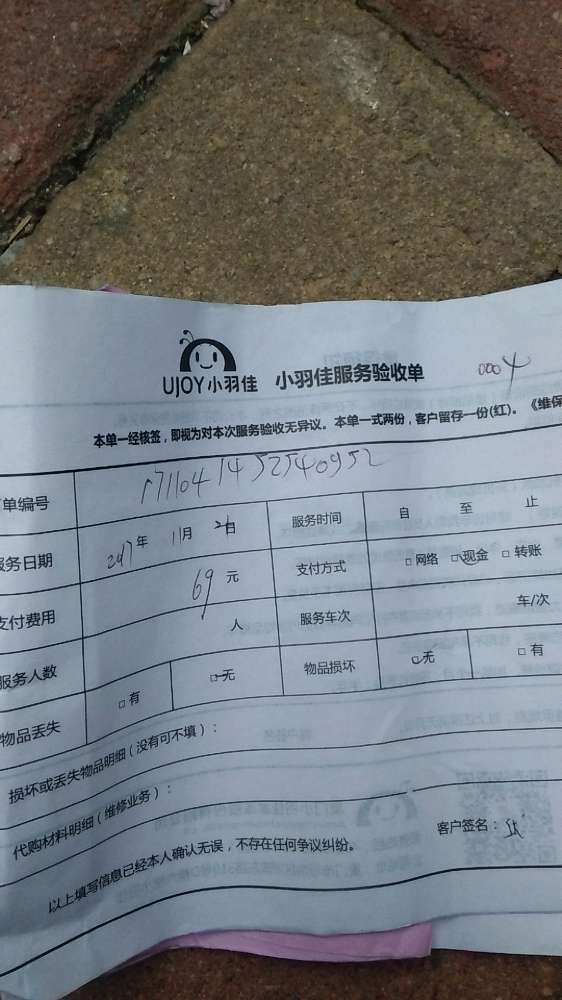 UJOY小羽佳 小羽佳服务验收单 0004
本单一经核签，即视为对本次服务验收无异议。本单一式两份，客户留存一份(红)。《维保
单编号 1711041452540952
服务日期 2017年 11月 日 服务时间 自 至 止
支付费用 69元 支付方式 □网络 □现金 □转账
服务人数 人 服务车次 车/次
物品丢失 □有 □无 物品损坏 □无 □有
损坏或丢失物品明细（没有可不填）：
代购材料明细（维修业务）：
以上填写信息已经本人确认无误，不存在任何争议纠纷。 客户签名：